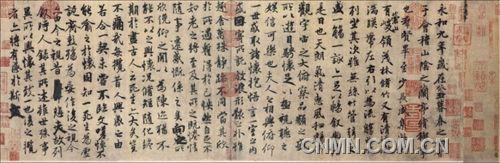 永和九年歲在癸丑暮春之初會
于會稽山陰之蘭亭脩稧事
也羣賢畢至少長咸集此地
有崇山峻領茂林脩竹又有清流激
湍暎帶左右引以為流觴曲水
列坐其次雖無絲竹管弦之
盛一觴一詠亦足以暢叙幽情
是日也天朗氣清惠風和暢仰
觀宇宙之大俯察品類之盛
所以遊目騁懷足以極視聽之
娛信可樂也夫人之相與俯仰
一世或取諸懷抱悟言一室之內
或因寄所託放浪形骸之外雖
趣舍萬殊靜躁不同當其欣
於所遇蹔得於己怏然自足不
知老之將至及其所之既惓情
隨事遷感慨係之矣向之所
欣俛仰之閒以為陳迹猶不
能不以之興懷況脩短隨化終
期於盡古人云死生亦大矣豈
不痛哉每攬昔人興感之由
若合一契未嘗不臨文嗟悼不
能喻之於懷固知一死生為虛
誕齊彭殤為妄作後之視今
亦由今之視昔悲夫故列
敘時人錄其所述雖世殊事
異所以興懷其致一也後之攬
者亦將有感於斯文
CNMN.COM.CN